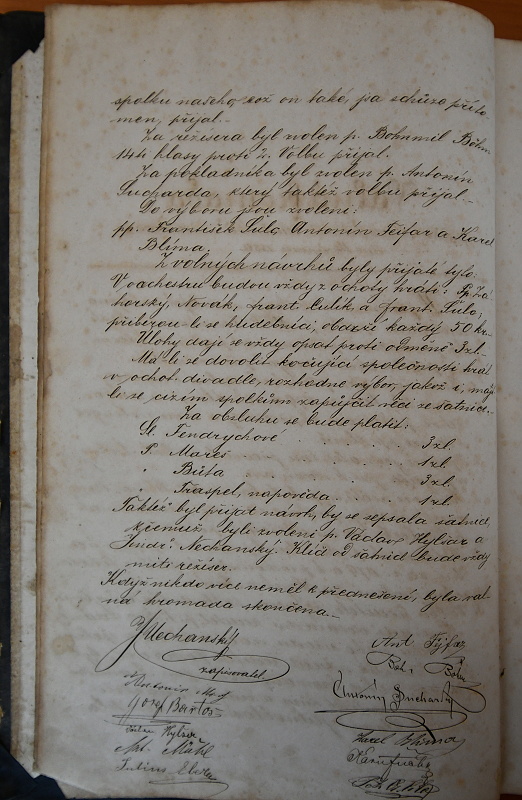 spolku našeho, což on také, jsa schůze příto-
men, přijal.
Za režisera byl zvolen p. Bohumil Böhm
14ti hlasy proti 2. Volbu přijal.
Za pokladníka byl zvolen p. Antonín
Sucharda, který taktéž volbu přijal.
Do výboru jsou zvoleni:
pp. František Šulc, Antonín Fejfar a Karel
Blíma.
Z volných návrhů byly přijaté tyto:
V orchestru budou vždy z ochoty hráti: Pp. Zá-
horský, Novák, frant. Čulík a frant. Šulc;
přiberou-li se hudebníci, obdrží každý 50 kr.
Úlohy dají se vždy opsat proti odměně 3 zl.
Má-li se dovolit kočující společnosti hrát
v ochot. divadle, rozhodne výbor, jakož i, má-
li se cizím spolkům zapůjčit věcí ze šatnice.
Za obsluhu se bude platit:
Sl. Fendrychové . . . 3 zl.
P. Mareš . . . 1 zl.
" Bůta . . . 3 zl.
" Traspel, napověda . . . 1 zl.
Taktéž byl přijat návrh, by se sepsala šatnice,
k čemuž byli zvoleni p. Václav Hylšar a
Jindř. Nechanský. Klíč od šatnice bude vždy
míti režiser.
Když nikdo více neměl k přednešení, byla val-
ná hromada skončena.
JNechanský
zapisovatel
Ant. Fejfar
Boh. Böhm
Antonín
Antonín Sucharda
Josef Bartoš
Karel Blíma
Julius